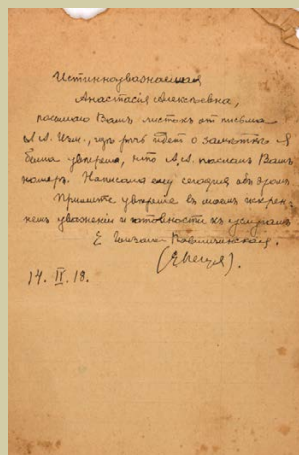 Истинноуважаемая
Анастасія Алексѣевна,
посылаю Вамъ листокъ от письма
А. А. Изм., гдѣ рѣчь идет о замѣткѣ. Я
была увѣрена, что А. А. послалъ Вамъ
номеръ. Написала ему сегодня объ этомъ.
Примите увѣрение в моемъ искрен-
немъ уважении и готовности къ услугамъ
Е.
14. II. 18.